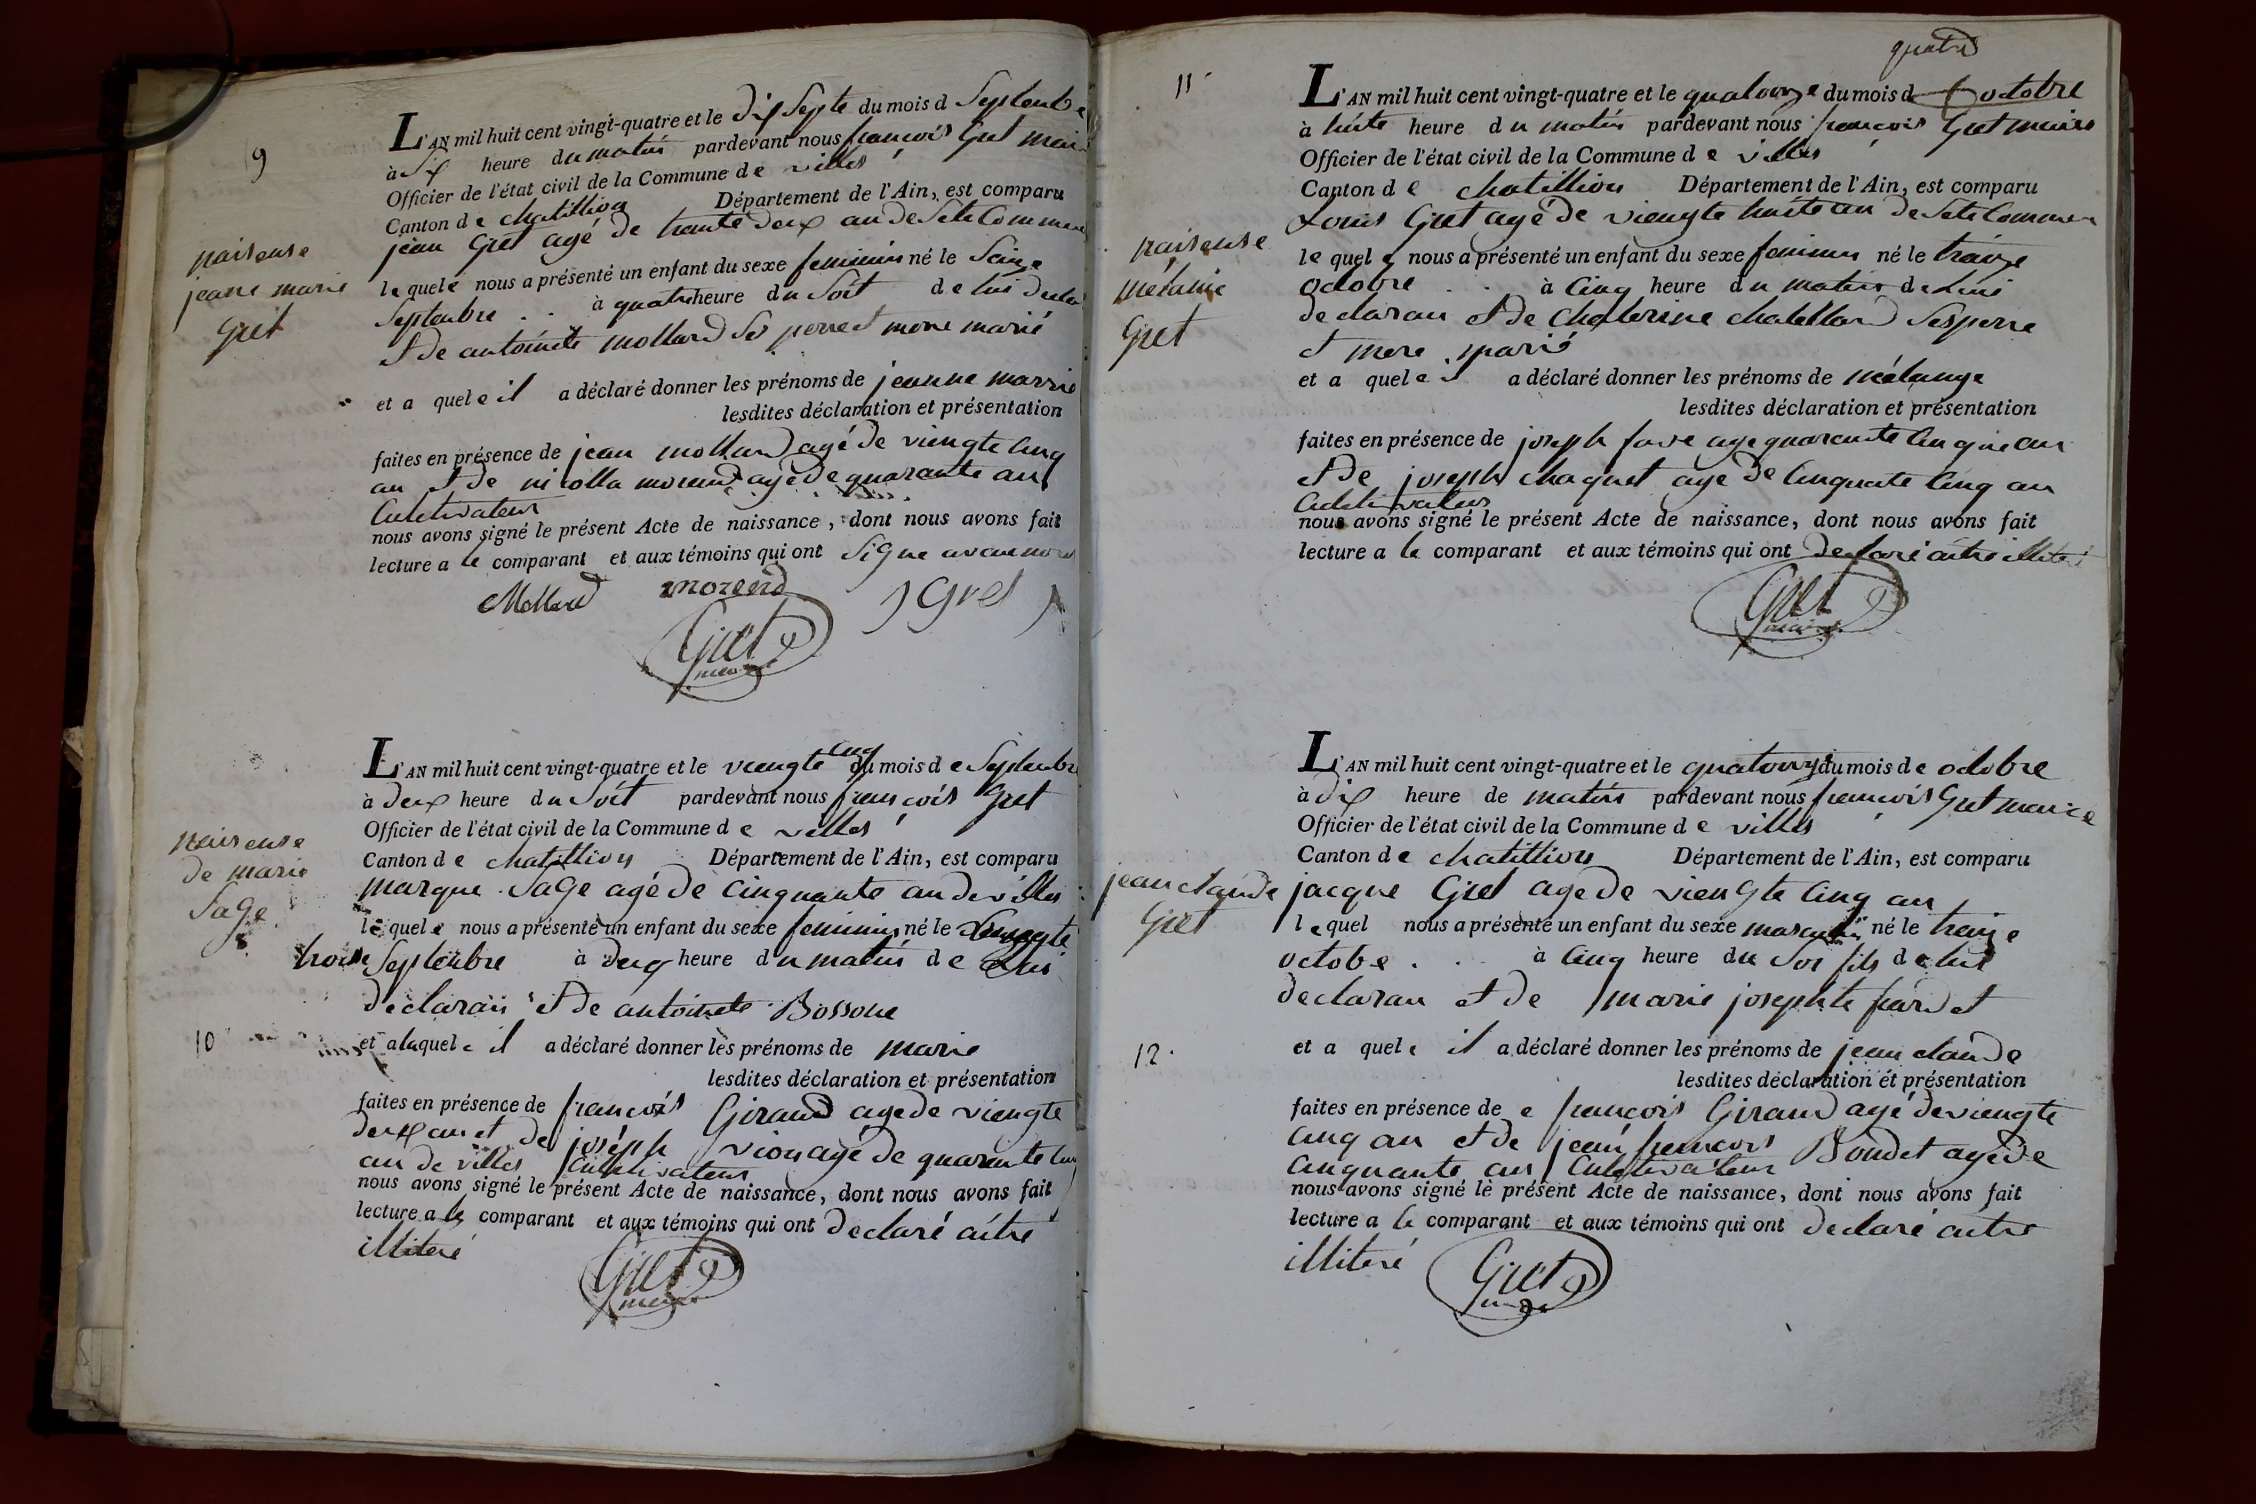 9
naisense
jeane marie
Gret
L'AN mil huit cent vingt-quatre et le dix septe du mois d Septenbre
à Six heure du matin pardevant nous françois Gret maire
Officier de l'état civil de la Commune de villes
Canton de chatillion Département de l'Ain, est comparu
jean Gret agé de trante deux an de Sete Commune
lequele nous a présenté un enfant du sexe feminin né le Saize
Septenbre à quatre heure du Soit de lui
et de antoinete mollard Ses perre et mere marié
et a quele il a déclaré donner les prénoms de jeanne marrie
lesdites déclaration et présentation
faites en présence de jean mollard agé de viengte cinq
an et de nicolla morend agé de quarante an
Cultivateur
nous avons signé le présent Acte de naissance, dont nous avons fait
lecture a le comparant et aux témoins qui ont Signe avec nous
Mollard morend J Gret
Gret maire
naisense
de marie
Sage
10
L'AN mil huit cent vingt-quatre et le viengte cinq du mois de Septenbre
à deux heure du Soit pardevant nous françois Gret
Officier de l'état civil de la Commune de villes
Canton de chatillion Département de l'Ain, est comparu
marque Sage agé de cinquante an de villes
le quele nous a présenté un enfant du sexe feminin né le viengte
troise Septenbre à deux heure du matin de lui
declaran et de antoinete Bossone
et a laquele il a déclaré donner les prénoms de marie
lesdites déclaration et présentation
faites en présence de françois Giraud agé de viengte
deux an et de joséph vion agé de quarente
an de villes Cultivateur
nous avons signé le présent Acte de naissance, dont nous avons fait
lecture a le comparant et aux témoins qui ont declaré aitre
illiteré
Gret maire
quatre
11
naisense
mélanie
Gret
L'AN mil huit cent vingt-quatre et le quatorze du mois d octobre
à huite heure du matin pardevant nous françois Gret maire
Officier de l'état civil de la Commune de villes
Canton de chatillion Département de l'Ain, est comparu
Louis Gret agé de viengte huite an de Sete Commune
le quel nous a présenté un enfant du sexe feminin né le traize
octobre à cinq heure du matin de lui
declaran et de chaterine chatellard Ses perre
et mere marié
et a quele il a déclaré donner les prénoms de mélange
lesdites déclaration et présentation
faites en présence de joseph favre age quarente cinq an
et de joseph chaquet agé de cinquante cinq an
Cultivateur
nous avons signé le présent Acte de naissance, dont nous avons fait
lecture a le comparant et aux témoins qui ont declaré aitre illiteré
Gret maire
jean claude
Gret
12
L'AN mil huit cent vingt-quatre et le quatorze du mois de octobre
à dix heure de matin pardevant nous françois Gret maire
Officier de l'état civil de la Commune de villes
Canton de chatillion Département de l'Ain, est comparu
jacque Gret age de viengte cinq an
le quel nous a présenté un enfant du sexe masculin né le traize
octobe à cinq heure du Soi fils de lui
declaran et de marie josephte
et a quele il a déclaré donner les prénoms de jean claude
lesdites déclaration et présentation
faites en présence de e françois Giraud agé de viengte
cinq an et de jean françois Boudet agé de
cinquante an Cultivateur
nous avons signé le présent Acte de naissance, dont nous avons fait
lecture a le comparant et aux témoins qui ont declaré aitre
illiteré
Gret maire